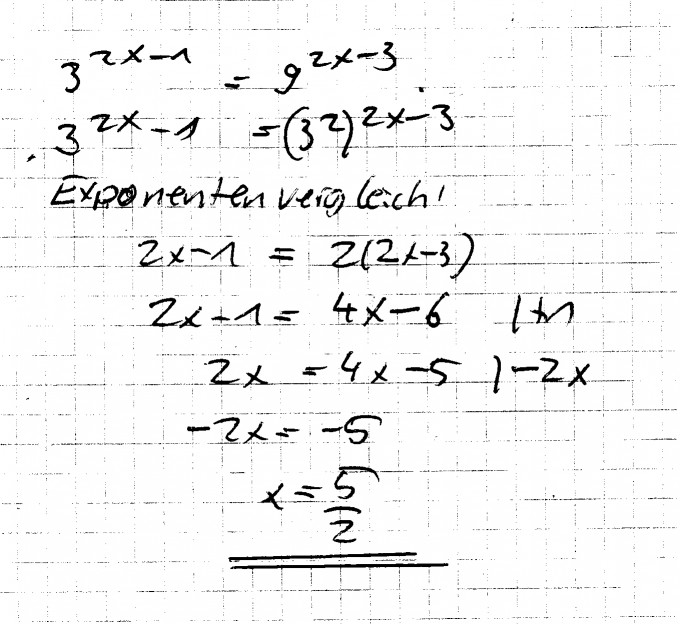 3^{2x-1} = 9^{2x-3}
3^{2x-1} = (3^2)^{2x-3}
Exponentenvergleich!
2x-1 = 2(2x-3)
2x-1 = 4x-6 |+1
2x = 4x-5 |-2x
-2x = -5
x = \frac{5}{2}